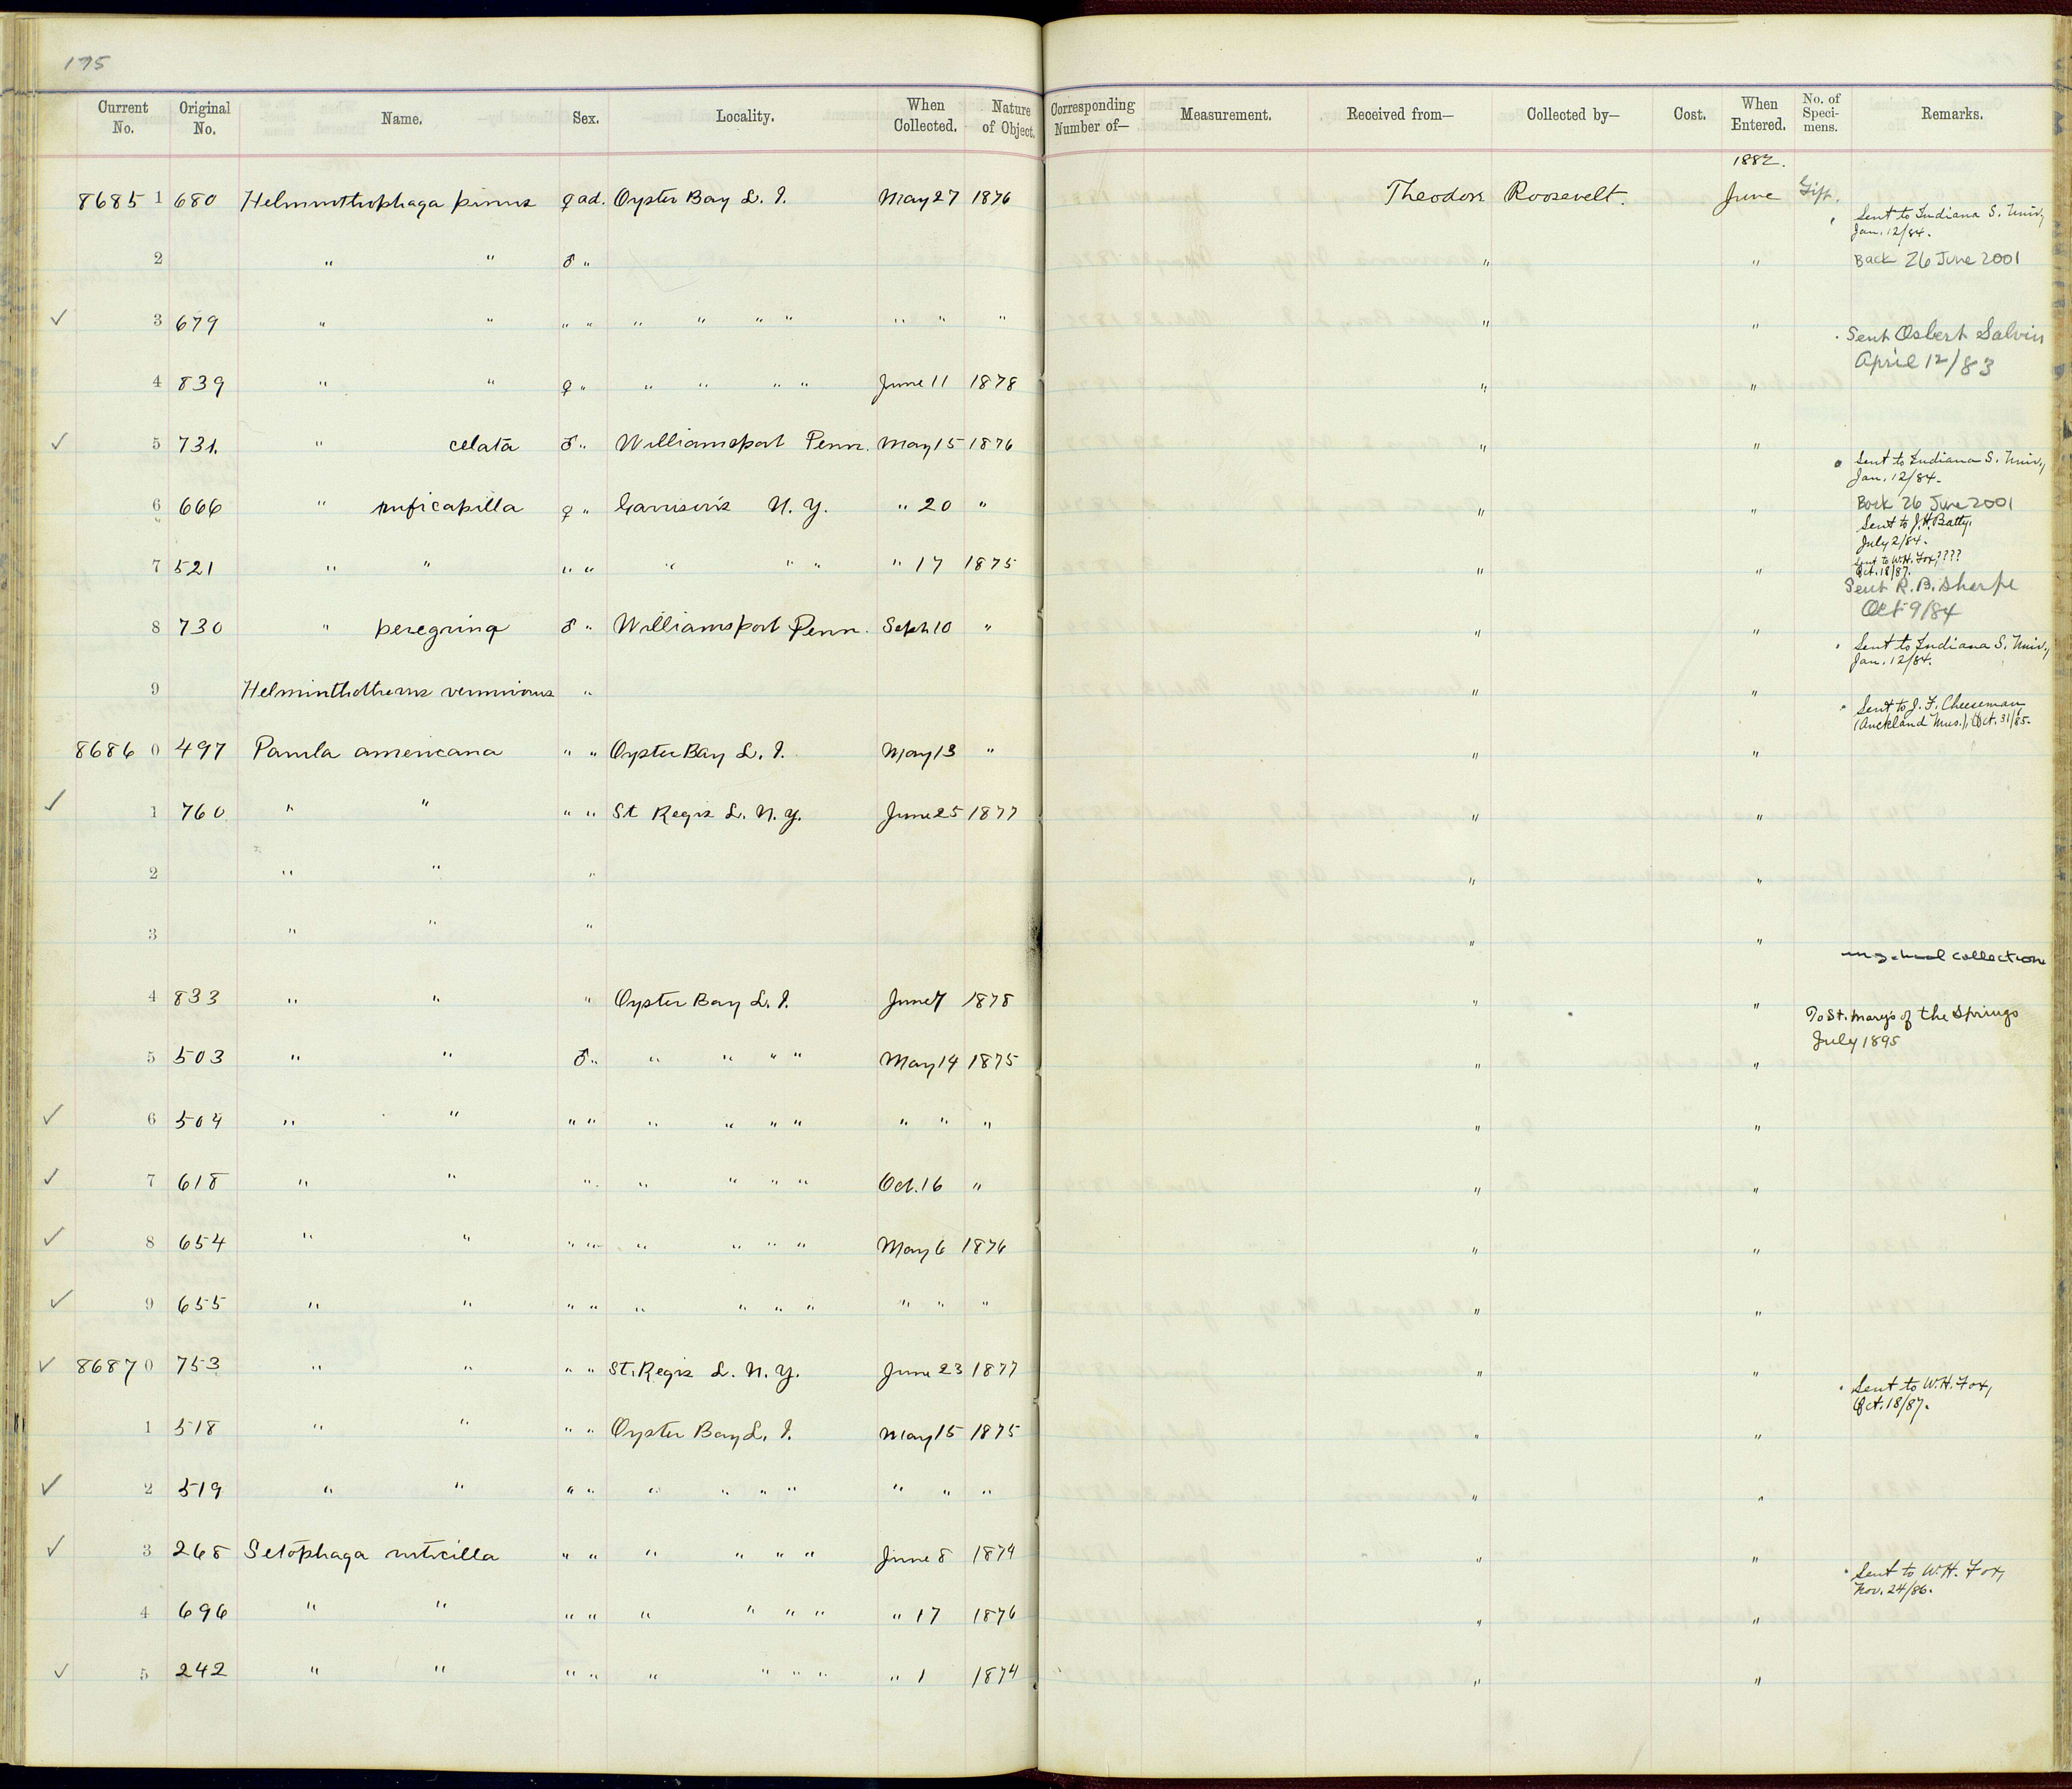 175
Current No. Original No. Name. Sex. Locality. When Collected. Nature of Object. Corresponding Number of— Measurement. Received from— Collected by— Cost. When Entered. No. of Specimens. Remarks.
1882.
8685 1 680 Helminthophaga pinus ♀ ad. Oyster Bay L. I. May 27 1876 Theodore Roosevelt. June Gift.
Sent to Indiana S. Univ,
Jan. 12/84.
2 " " ♂ " " " Back 26 June 2001
3 679 " " " " " " " " " " " " "
Sent Osbert Salvin
April 12/83
4 839 " " ♀ " " " " " June 11 1878 " "
5 731. " celata ♂ " Williamsport Penn. May 15 1876 " "
Sent to Indiana S. Univ,
Jan. 12/84.
6 666 " ruficapilla ♀ " Garrison's N. Y. " 20 " " " Back 26 June 2001
Sent to J. H. Batty,
July 2/84.
Sent to W. H. Fox, ????
Oct. 18/87.
7 521 " " " " " " " " 17 1875 " "
Sent R. B. Sharpe
Oct 9/84
8 730 " peregrina ♂ " Williamsport Penn. Sept 10 " " "
Sent to Indiana S. Univ,
Jan. 12/84.
9 Helminthotherus vermivorus " " "
Sent to J. F. Cheeseman
(Auckland Mus.), Oct. 31/85.
8686 0 497 Parula americana " " Oyster Bay L. I. May 13 " " "
1 760 " " " " St Regis L. N. Y. June 25 1877 " "
2 " " " " "
3 " " " " "
collection
4 833 " " " Oyster Bay L. I. June 7 1878 " "
To St. Mary's of the Springs
July 1895
5 503 " " ♂ " " " " " May 14 1875 " "
6 504 " " " " " " " " " " " " "
7 618 " " " " " " " Oct. 16 " " "
8 654 " " " " " " " " May 6 1876 " "
9 655 " " " " " " " " " " " " "
8687 0 753 " " " " St. Regis L. N. Y. June 23 1877 " "
Sent to W. H. Fox,
Oct. 18/87.
1 518 " " " " Oyster Bay L. I. May 15 1875 " "
2 519 " " " " " " " " " " " " "
3 268 Setophaga ruticilla " " " " " " June 8 1874 " "
Sent to W. H. Fox,
Nov. 24/86.
4 696 " " " " " " " " " 17 1876 " "
5 242 " " " " " " " " " 1 1874 " "